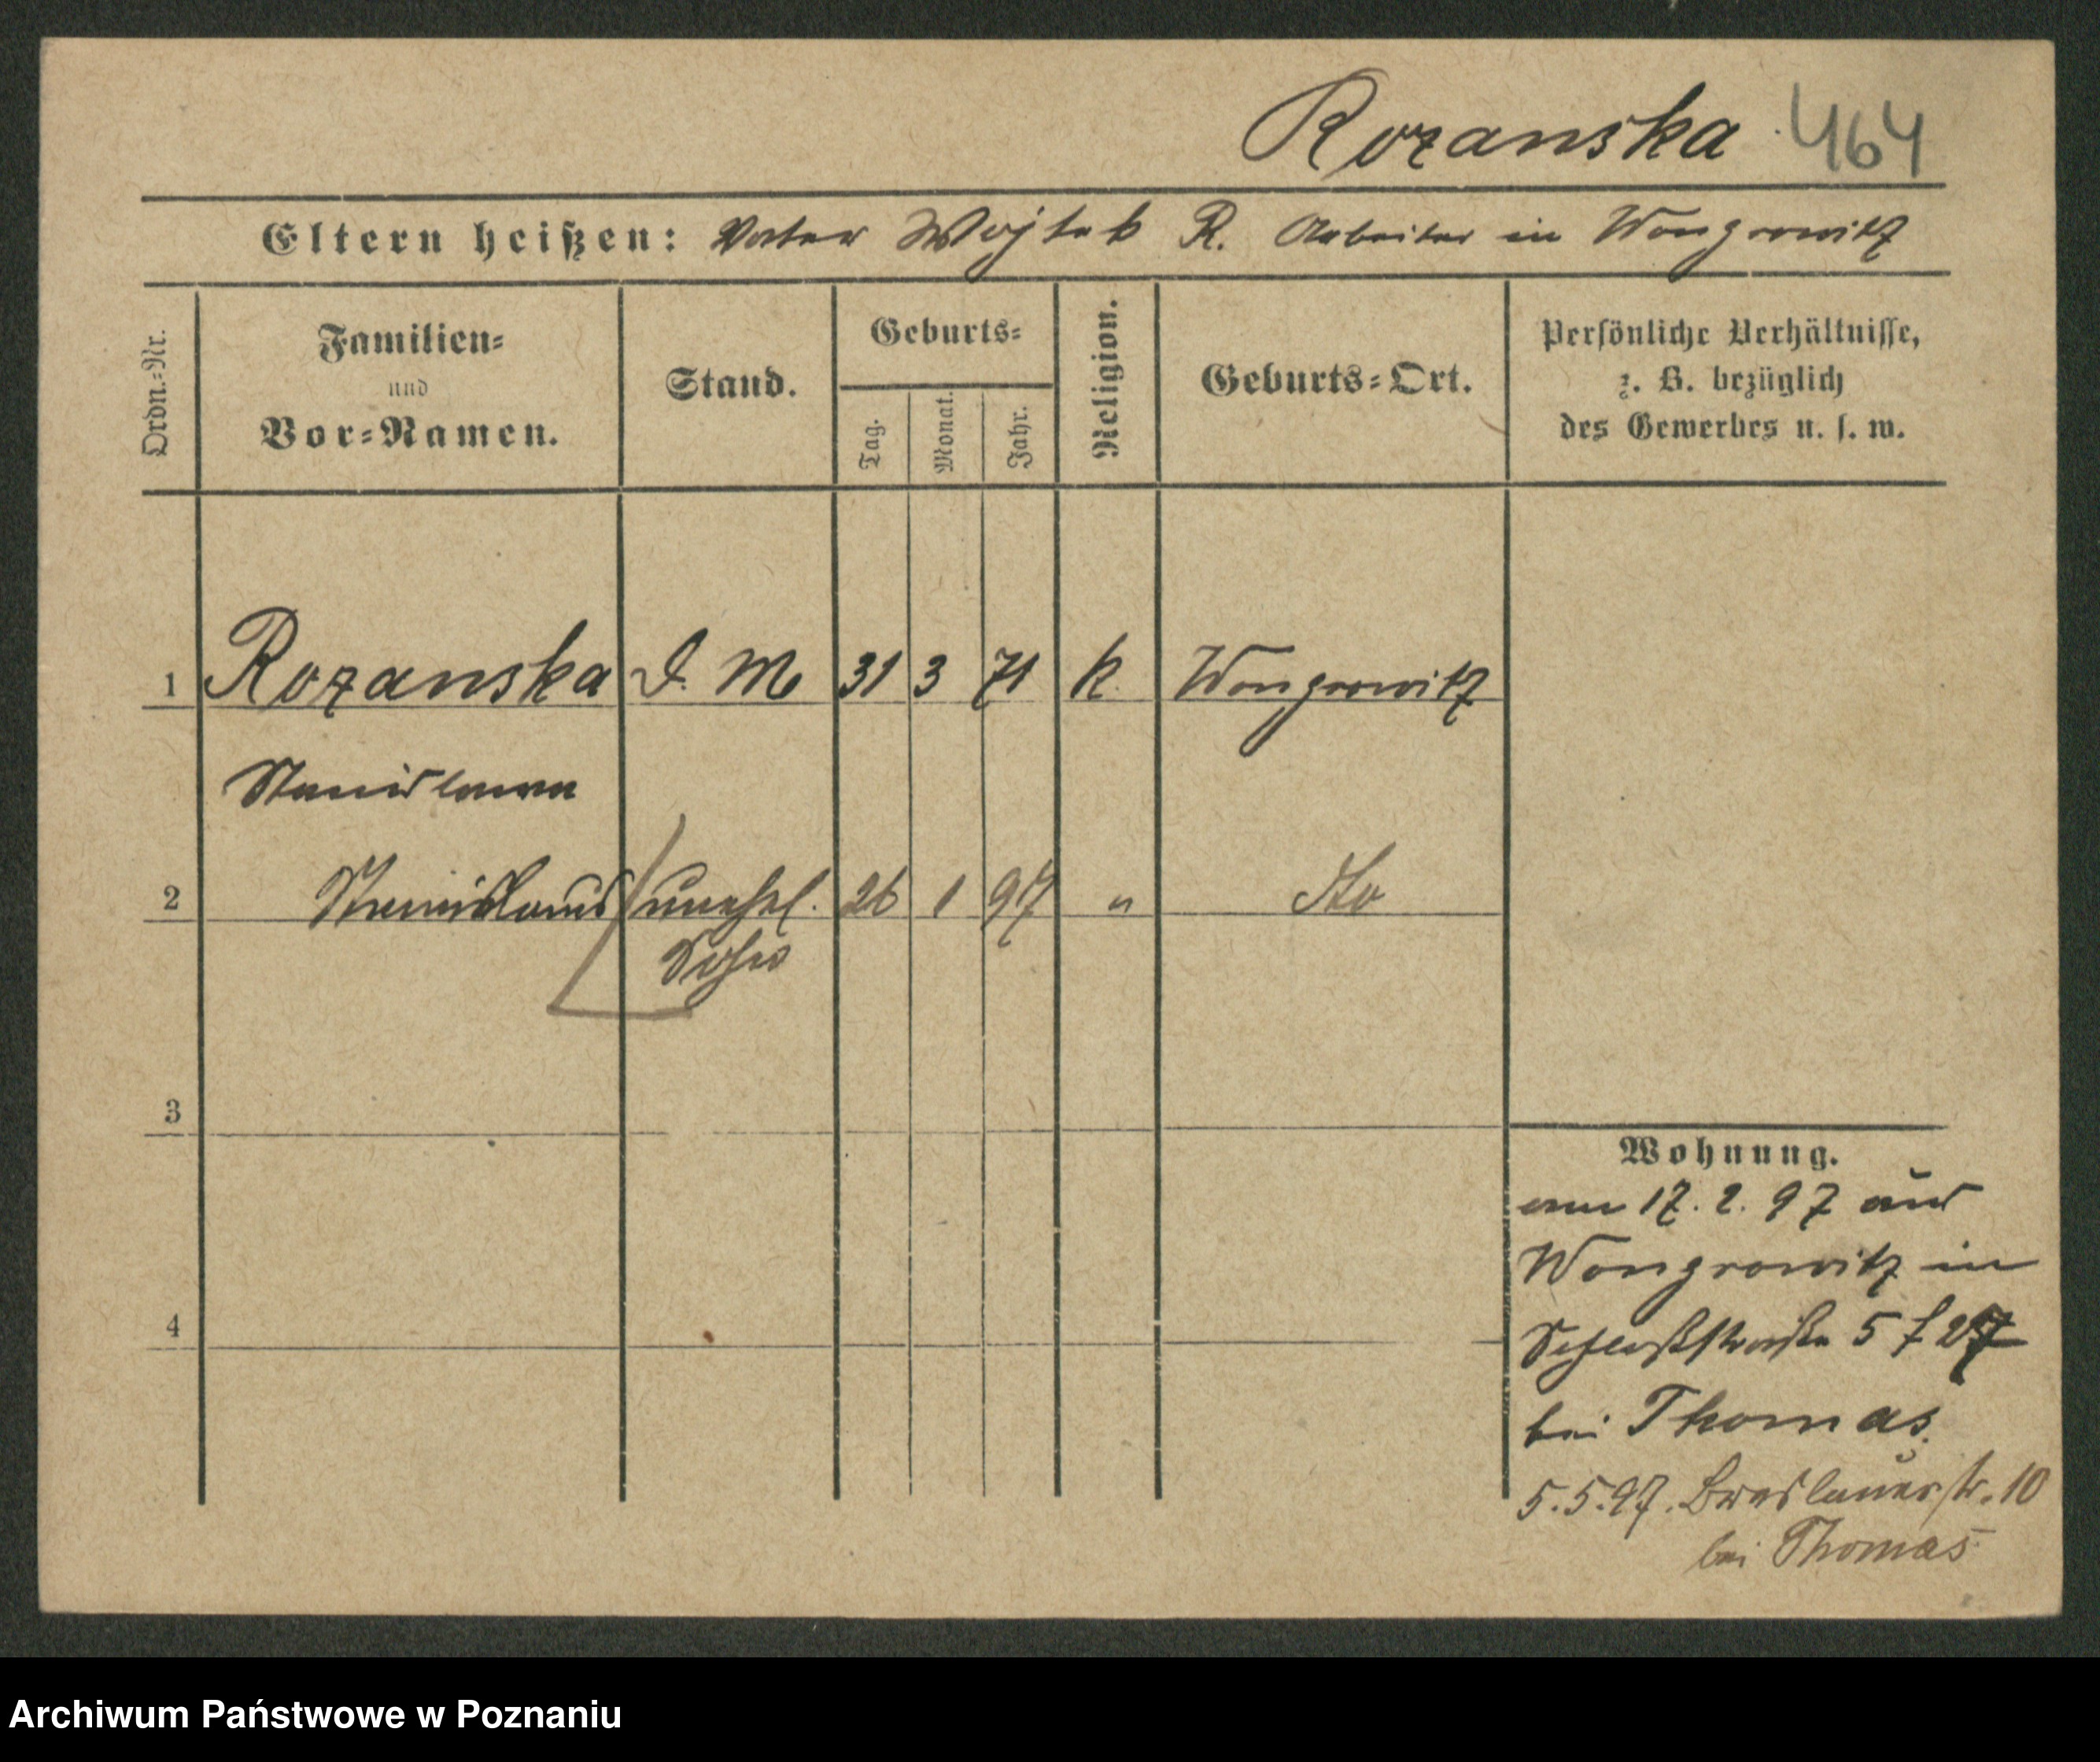 Rozanska 464
Eltern heißen: Vater Wojtek R. Arbeiter in Wongrowitz
Ordn.-Nr.
Familien-
und
Vor-Namen.
Stand.
Geburts-
Tag.
Monat.
Jahr.
Religion.
Geburts-Ort.
Persönliche Verhältnisse,
z. B. bezüglich
des Gewerbes u. s. w.
1 Rozanska D. M 31 3 71 k. Wongrowitz
Stanislawa
2 Stanislaus unehel. 26 1 97 " dto
Sohn
3
4
Wohnung.
am 17. 2. 97 aus
Wongrowitz in
Schloßstraße 5
bei Thomas.
5. 5. 97. Breslauerstr. 10
bei Thomas
Archiwum Państwowe w Poznaniu